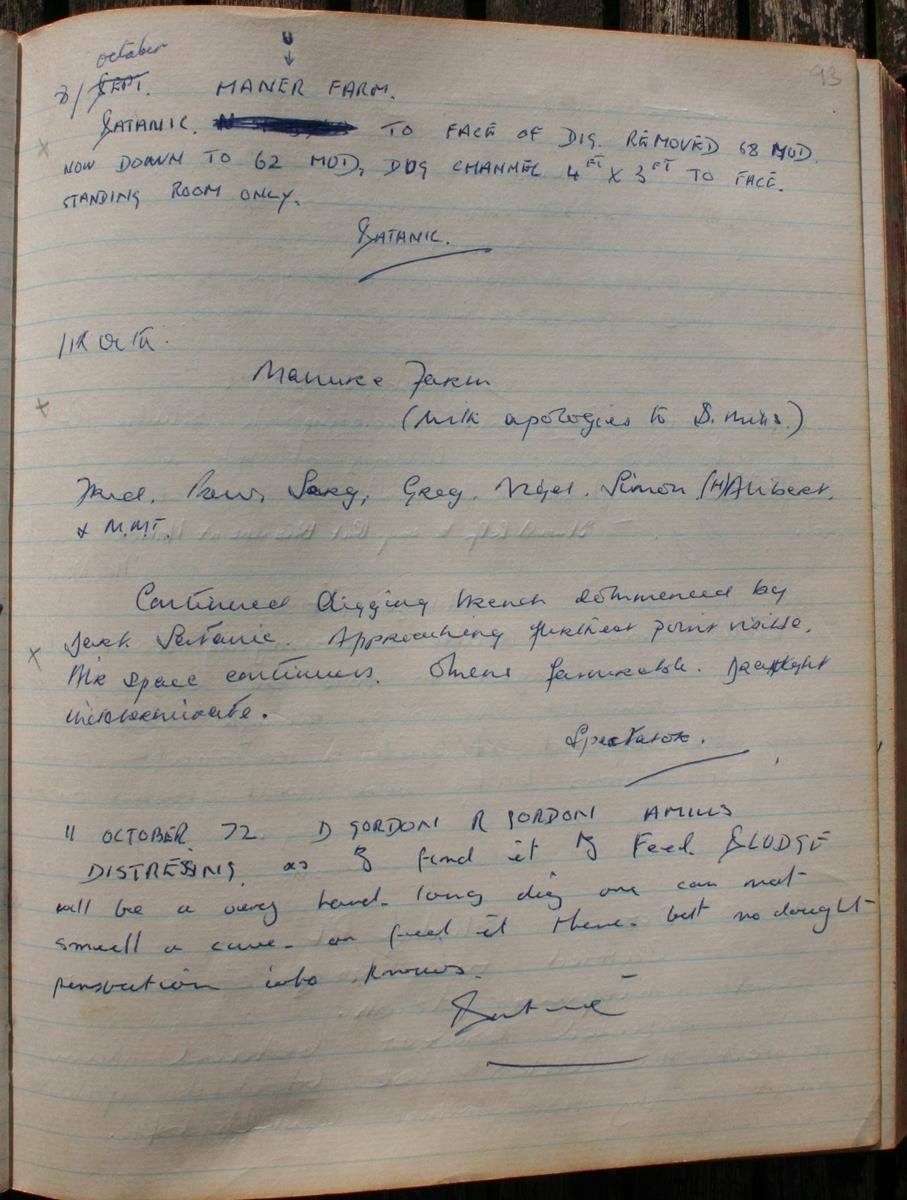 october
8/ SEPT. MANER FARM. 93
U
SATANIC. TO FACE OF DIG. REMOVED 68 MUD.
NOW DOWN TO 62 MUD, DUG CHANNEL 4FT X 3FT TO FACE.
STANDING ROOM ONLY.
SATANIC.
11th Oct.
Manure Farm
(With apologies to S. Mills.)
Fred, Greg, Nigel, Simon (H)Alibert,
& M.M.T.
Continued digging trench commenced by
Jerk Satanic. Approaching furthest point visible.
Air space continues. Omens favourable. Draught
indeterminate.
Spectator.
11 OCTOBER 72 D GORDON R GORDON AMILLS
DISTRESSING as I find it to Feel SLUDGE
will be a very hard long dig one can not
smell a cave or feel it there but no dought
persvation who knows.
Satanic